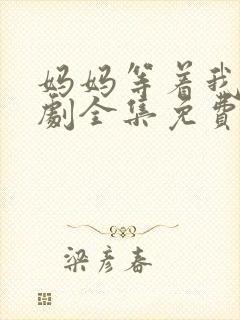 妈妈等着我
劇全集免費
梁彦春